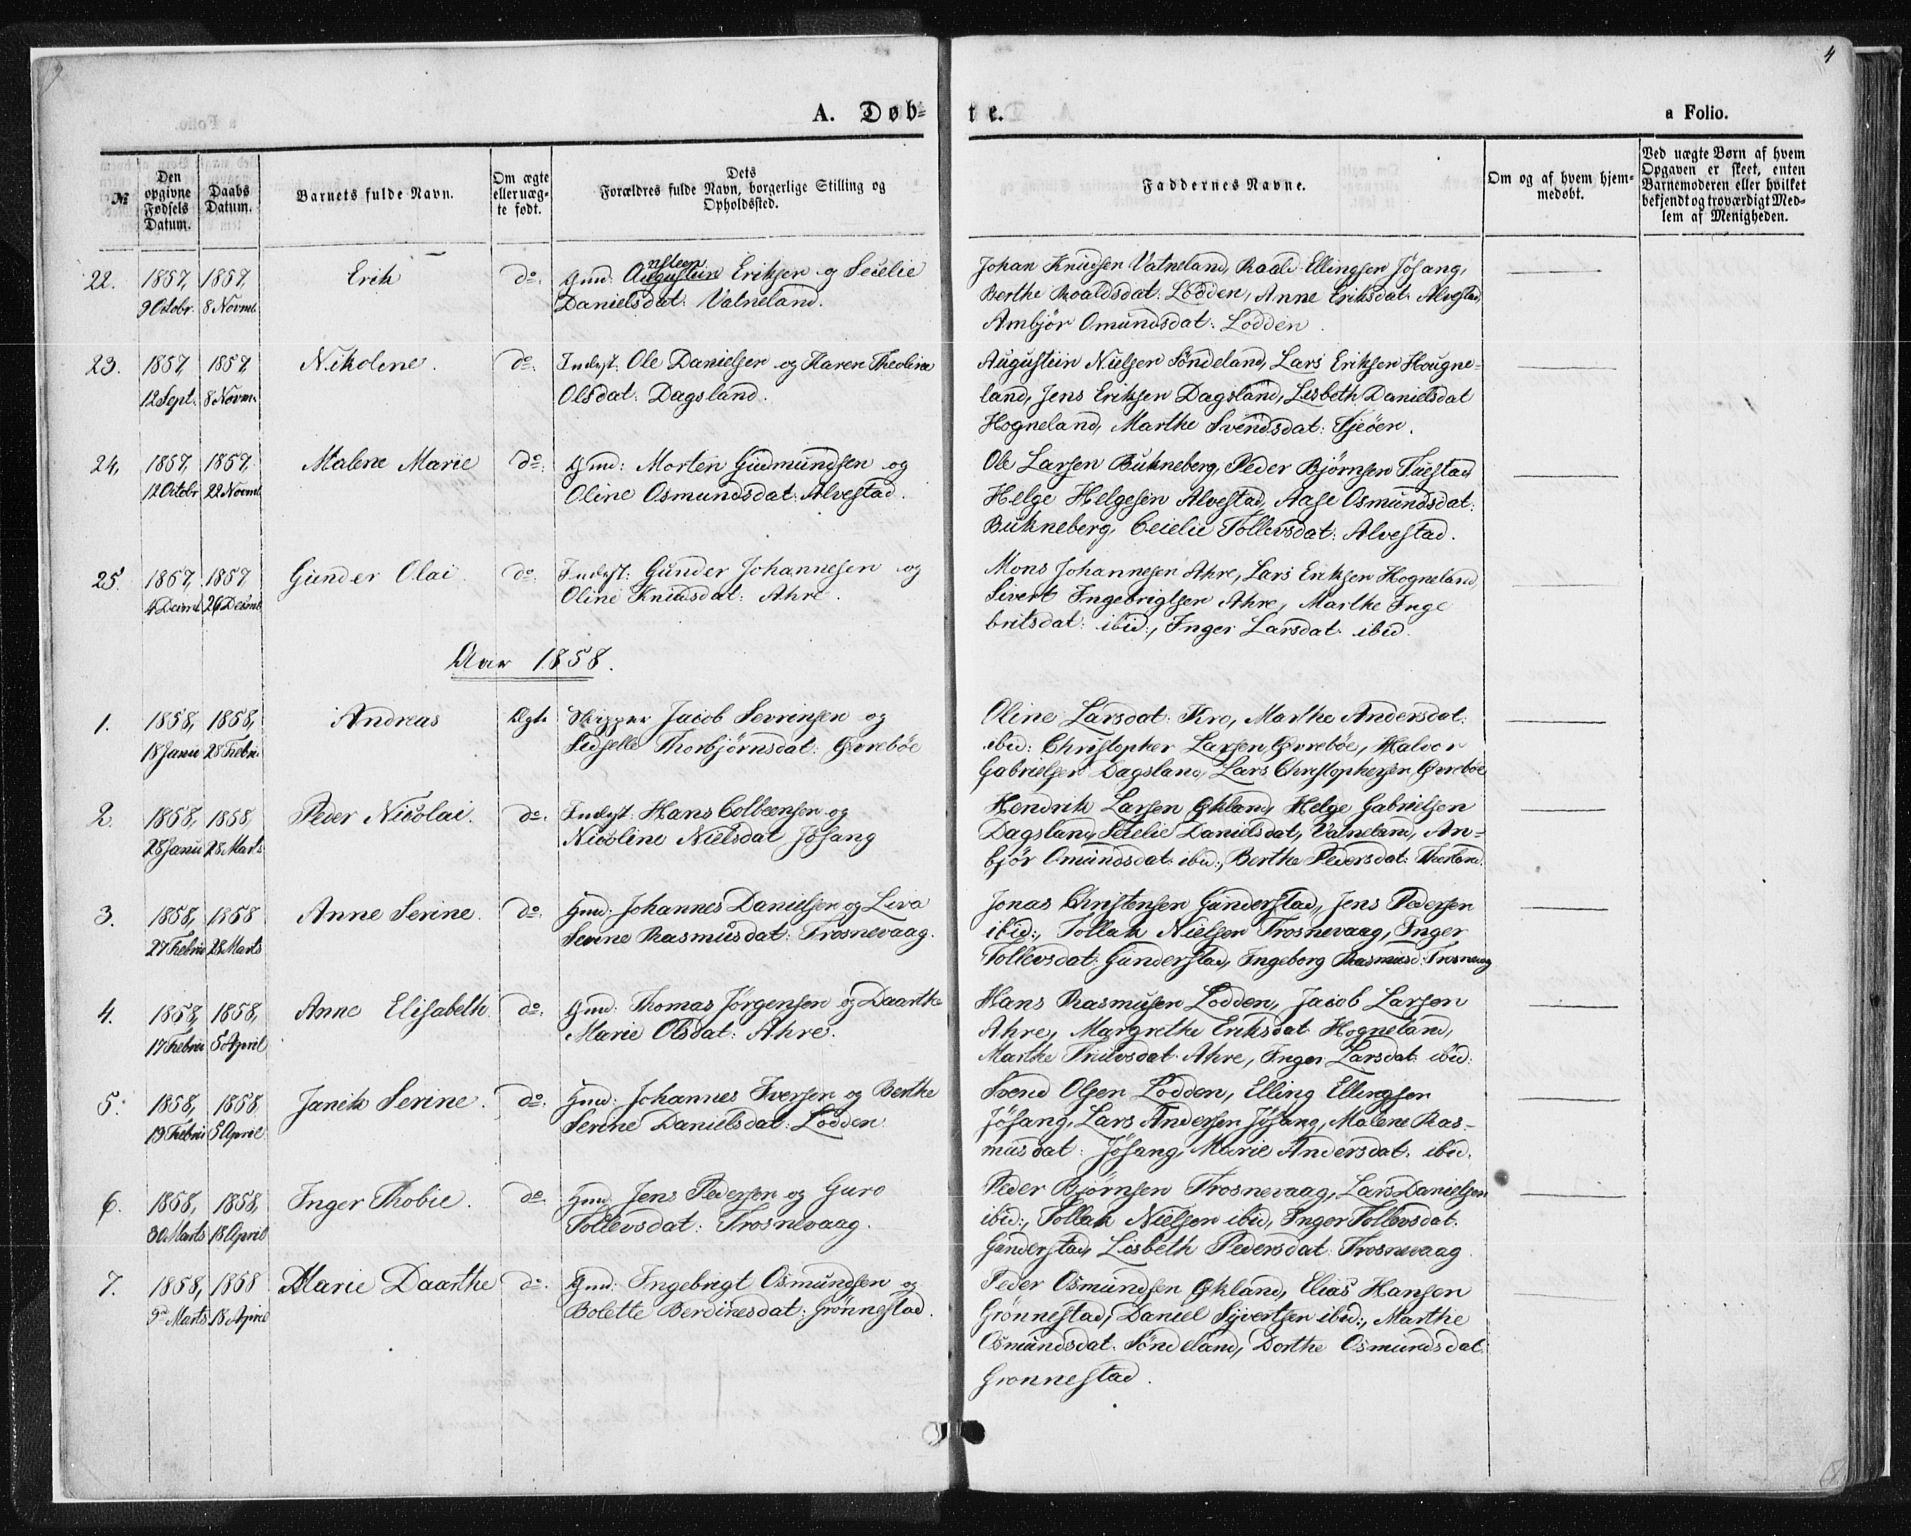 4
A. Døb-
te.
a Folio.
№
Den opgivne Fødsels Datum.
Daabs Datum.
Barnets fulde Navn.
Om ægte eller uæg-te født.
Dets Forældres fulde Navn, borgerlige Stilling og Opholdssted.
Faddernes Navne.
Om og af hvem hjem-medøbt.
Ved uægte Børn af hvem Opgaven er skeet, enten Barnemoderen eller hvilket bekjendt og troværdigt Med-lem af Menigheden.
22. 1857, 1857, Erik do. Gmd: Augustin Eriksen og Secelie
9 Octobr. 8 Novmb. Danielsdat: Vatneland.
Johan Knudsen Vatneland, Roald Ellingsen Jøsang,
Berthe Roaldsdat: Lodden, Anne Eriksdat: Alvestad
Ambjør Omundsdat: Lodden.
23. 1857, 1857, Nikoline. do. Indst: Ole Danielsen og Karen Theoline
12 Sept. 8 Novm. Olsdat: Dagsland.
Augustin Nielsen Søndeland, Lars Eriksen Hougne-
land, Jens Eriksen Dagsland, Lisbeth Danielsdat
Hogneland, Marthe Svendsdat:
24, 1857, 1857, Malene Marie do. Gmd: Morten Gudmundsen og
12 Octobr 22 Novmb. Oline Osmundsdat: Alvestad.
Ole Larsen Bukneberg, Peder Bjørnsen
Helge Helgesen Alvestad, Aase Osmundsdat:
Bukneberg, Ceielie Tollevsdat: Alvestad.
25. 1857, 1857 Gunder Olai do. Indst: Gunder Johannesen og
4 Decmb. 26 Decmb. Oline Knudsdat: Ahre.
Mons Johannesen Ahre, Lars Eriksen Hogneland,
Sivert Ingebrigtsen Ahre, Marthe Inge
britsdat: ibid:, Inger Larsdat: ibid.
Aar 1858.
1. 1858, 1858, Andreas Ægte Skipper Jacob Sevrinsen og
18 Janu 28 Febru. Sidselle Thorbjørnsdat: Øvrebøe
Oline Larsdat: Kro, Marthe Andersdat:
ibid: Christopher Larsen Øvrebøe, Halvor
Gabrielsen Dagsland, Lars Christophersen Øvrebøe
2. 1858, 1858, Peder Nicolai. do. Indst: Hans Colbeensen og
28 Janu 28 Marts Nicoline Nielsdat Jøsang
Hendrik Larsen Økland, Helge Gabrielsen
Dagsland, Secelie Danielsdat, Vatneland, An-
bjør Omundsdat: ibid:, Berthe Pedersdat:
3. 1858, 1858 Anne Serine. do. Gmd: Johannes Danielsen og Liva
27 Febru 28 Marts Serine Rasmusdat: Trosnevaag.
Jonas Christensen Gunderstad, Jens Pedersen
ibid:, Tollak Nielsen Trosnevaag, Inger
Tollevsdat: Gunderstad, Ingeborg Rasmusd: Trosnevaag
4. 1858, 1858, Anne Elisabeth. do. Gmd: Thomas Jørgensen og Daarthe
17 Febru 5 April Marie Olsdat: Ahre.
Hans Rasmusen Lodden, Jacob Larsen
Ahre, Margrethe Eriksdat Hogneland,
Marthe Truevsdat: Ahre, Inger Larsdat: ibid:
5. 1858, 1858, Janik Serine. do. Gmd: Johannes Iversen og Berthe
19 Febru 5 April. Serine Danielsdat: Lodden
Svend Olsen Lodden, Elling Ellingsen
Jøsang, Lars Andersen Jøsang, Malene Ras-
musdat: Jøsang, Marie Andersdat: ibid.
6. 1858, 1858, Inger Thobie. do Gmd Jens Pedersen og Guro
30 Marts 18 April Tollevsdat: Trosnevaag.
Peder Bjørnsen Trosnevaag, Lars Danielsen
ibid:, Tollak Nielsen ibid, Inger Tollevsdat.
Gunderstad, Lisbeth Pedersdat: Trosnevaag
7. 1858, 1858 Marie Daarthe do. Gmd: Ingebrigt Osmundsen og
9de Marts 18 April Bolette Berdinesdat: Grønnestad.
Peder Osmundsen Økland, Elias Hansen
Grønnestad, Daniel Syvertsen ibid:, Marthe
Osmundsdat. Søndeland, Dorthe Osmundsdat:
Grønnestad.